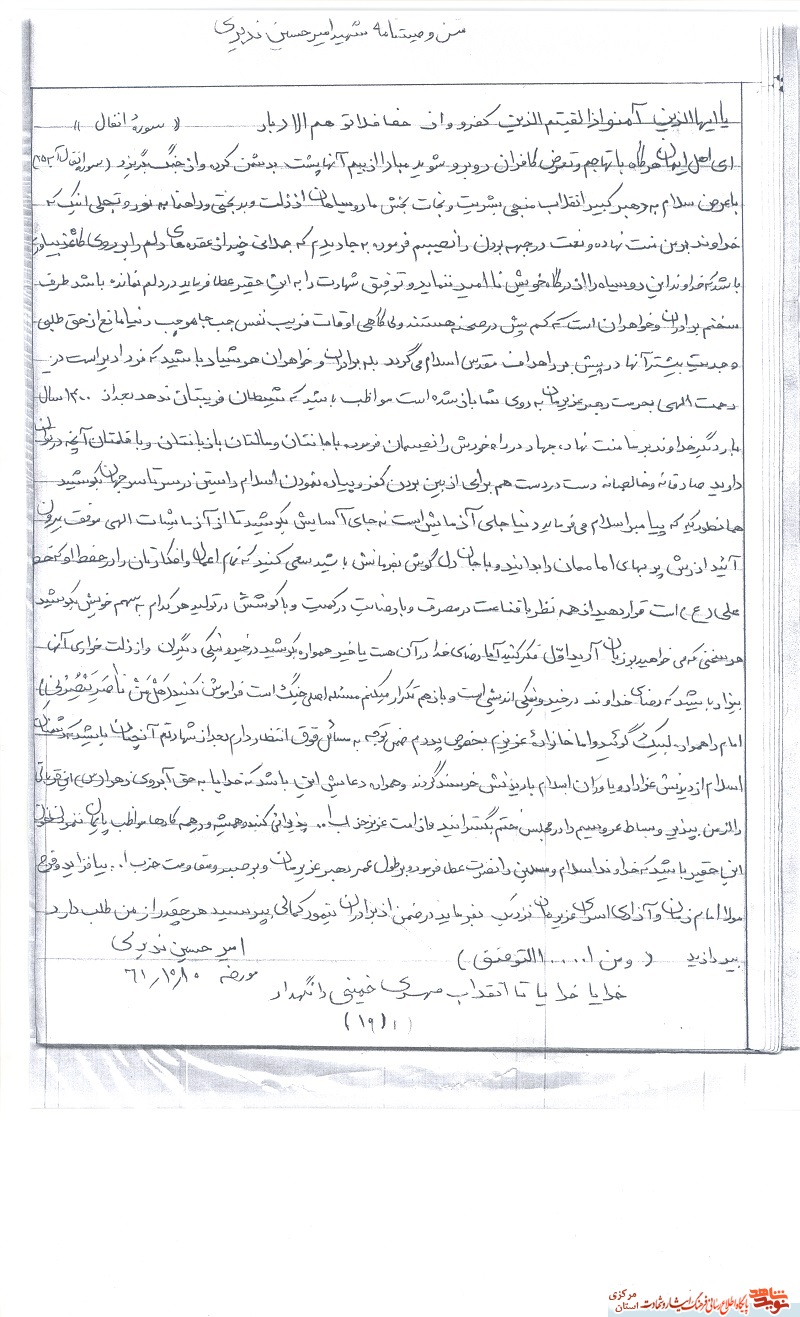 متن وصیتنامه شهید امیر حسین ندیری
یا ایها الذین آمنو اذا لقیتم الذین کفرو وان حفا فلا تو هم الادبار « سوره انفال »
ای اهل ایمان هرگاه با تهاجم و تعرض کافران روبرو شوید مبادا از بیم آنها پشت بدشمن کرده و از جنگ بگریزد (سوره انفال آیه ۱۵)
با عرض سلام به رهبر کبیر انقلاب منجی بشریت و نجات بخش ما رو سیاهان از ذلت و بدبختی و راهنما به نور و تجلی اینک که
خداوند بر من منت نهاده و نعمت در جبهه بودن را نصیبم فرموده به جا دیدم که جملاتی چند از عقده های دلم را بر روی کاغذ بیاورم
باشد که خداوند این رو سیاه را از درگاه خویش نا امید ننماید و توفیق شهادت را به این حقیر عطا فرماید در دلم نمانده باشد طرف
سخنم برادران و خواهران است که کم و بیش در صحنه هستند ولی گاهی اوقات فریب نفس حب جاه و حب دنیا مانع از حق طلبی
و جدیت بیشتر آنها در پیش برد اهداف مقدس اسلام می گردد بله برادران و خواهران هوشیار باشید که فردا دیر است درب
رحمت الهی بدست رهبر عزیزمان به روی شما باز شده است مواظب باشید که شیطان فریبتان ندهد بعد از ۱۴۰۰ سال
بار دیگر خداوند بر ما منت نهاد، جهاد در راه خودش را نصیبمان فرموده با جانتان و مالتان با زبانتان و با قلمتان آنچه در توان
دارید صادقانه و خالصانه دست در دست هم برای از بین بردن کفر و پیاده نمودن اسلام راستین در سرتاسر جهان بکوشید
همانطور که که پیامبر اسلام می فرماید دنیا جای آزمایش است نه جای آسایش بکوشید تا از آزمایشات الهی موفق بیرون
آئید ارزش پر بهای اماممان را بدانید و با جان دل گوش بفرمانش باشید سعی کنید که تمام اعمال و افکارتان را در خط او که خط
علی (ع) است قرار دهید از همه نظر با قناعت در مصرف و با رضایت در کمیت و با کوشش در تولید هر کدام به سهم خویش بکوشید
هر سخنی که می خواهید بر زبان آرید اول فکر کنید آیا رضای خدا در آن هست یا خیر همواره بکوشید در خیر و نیکی دیگران و از ذلت خواری آنها
بیزار باشید که رضای خداوند در خیر و نیکی اندیشی است و باز هم تکرار میکنم مسئله اصلی جنگ است فراموش نکنید (هَل مِن ناصَر یَنصُرنی)
امام را همواره لبیک گوئید و اما خانواده عزیزم بخصوص پدرم ضمن توجه به مسائل فوق انتظار دارم بعد از شهادتم آنچنان باشید که دشمنان
اسلام از دیدنش عزادار و یاوران اسلام با دیدنش خرسند گردند و همواره دعایش این باشد که خدایا به حق آبروی زهرا (س) این قربانی
را از من بپذیر و بساط عروسیم را در مجلس ختم بگسترانید و از امت عزیز حزب ا.. پذیرائی کنند و همیشه و در همه کارها مواظب پایمال ننمودن خون
این حقیر باشید که خداوند اسلام و مسلمین را نصرت عطا فرموده و بر طول عمر رهبر عزیزمان و بر صبر و مقاومت حزب ا.. بیافزاید و فرج
مولا امام زمان و آزادی اسرای عزیزمان نزدیک بفرماید در ضمن از برادران تیمور کمالی بپرسید هر چقدر از من طلب دارد
بپردازید ( ومن ا.....التوفیق )
امیر حسین ندیری
مورخه ۶۱/۱۰/۱۰
خدایا خدایا تا انقلاب مهدی خمینی را نگهدار
(۱۹/۱)
نوید شاهد
پایگاه اطلاع رسانی فرهنگ ایثار و شهادت استان مرکزی